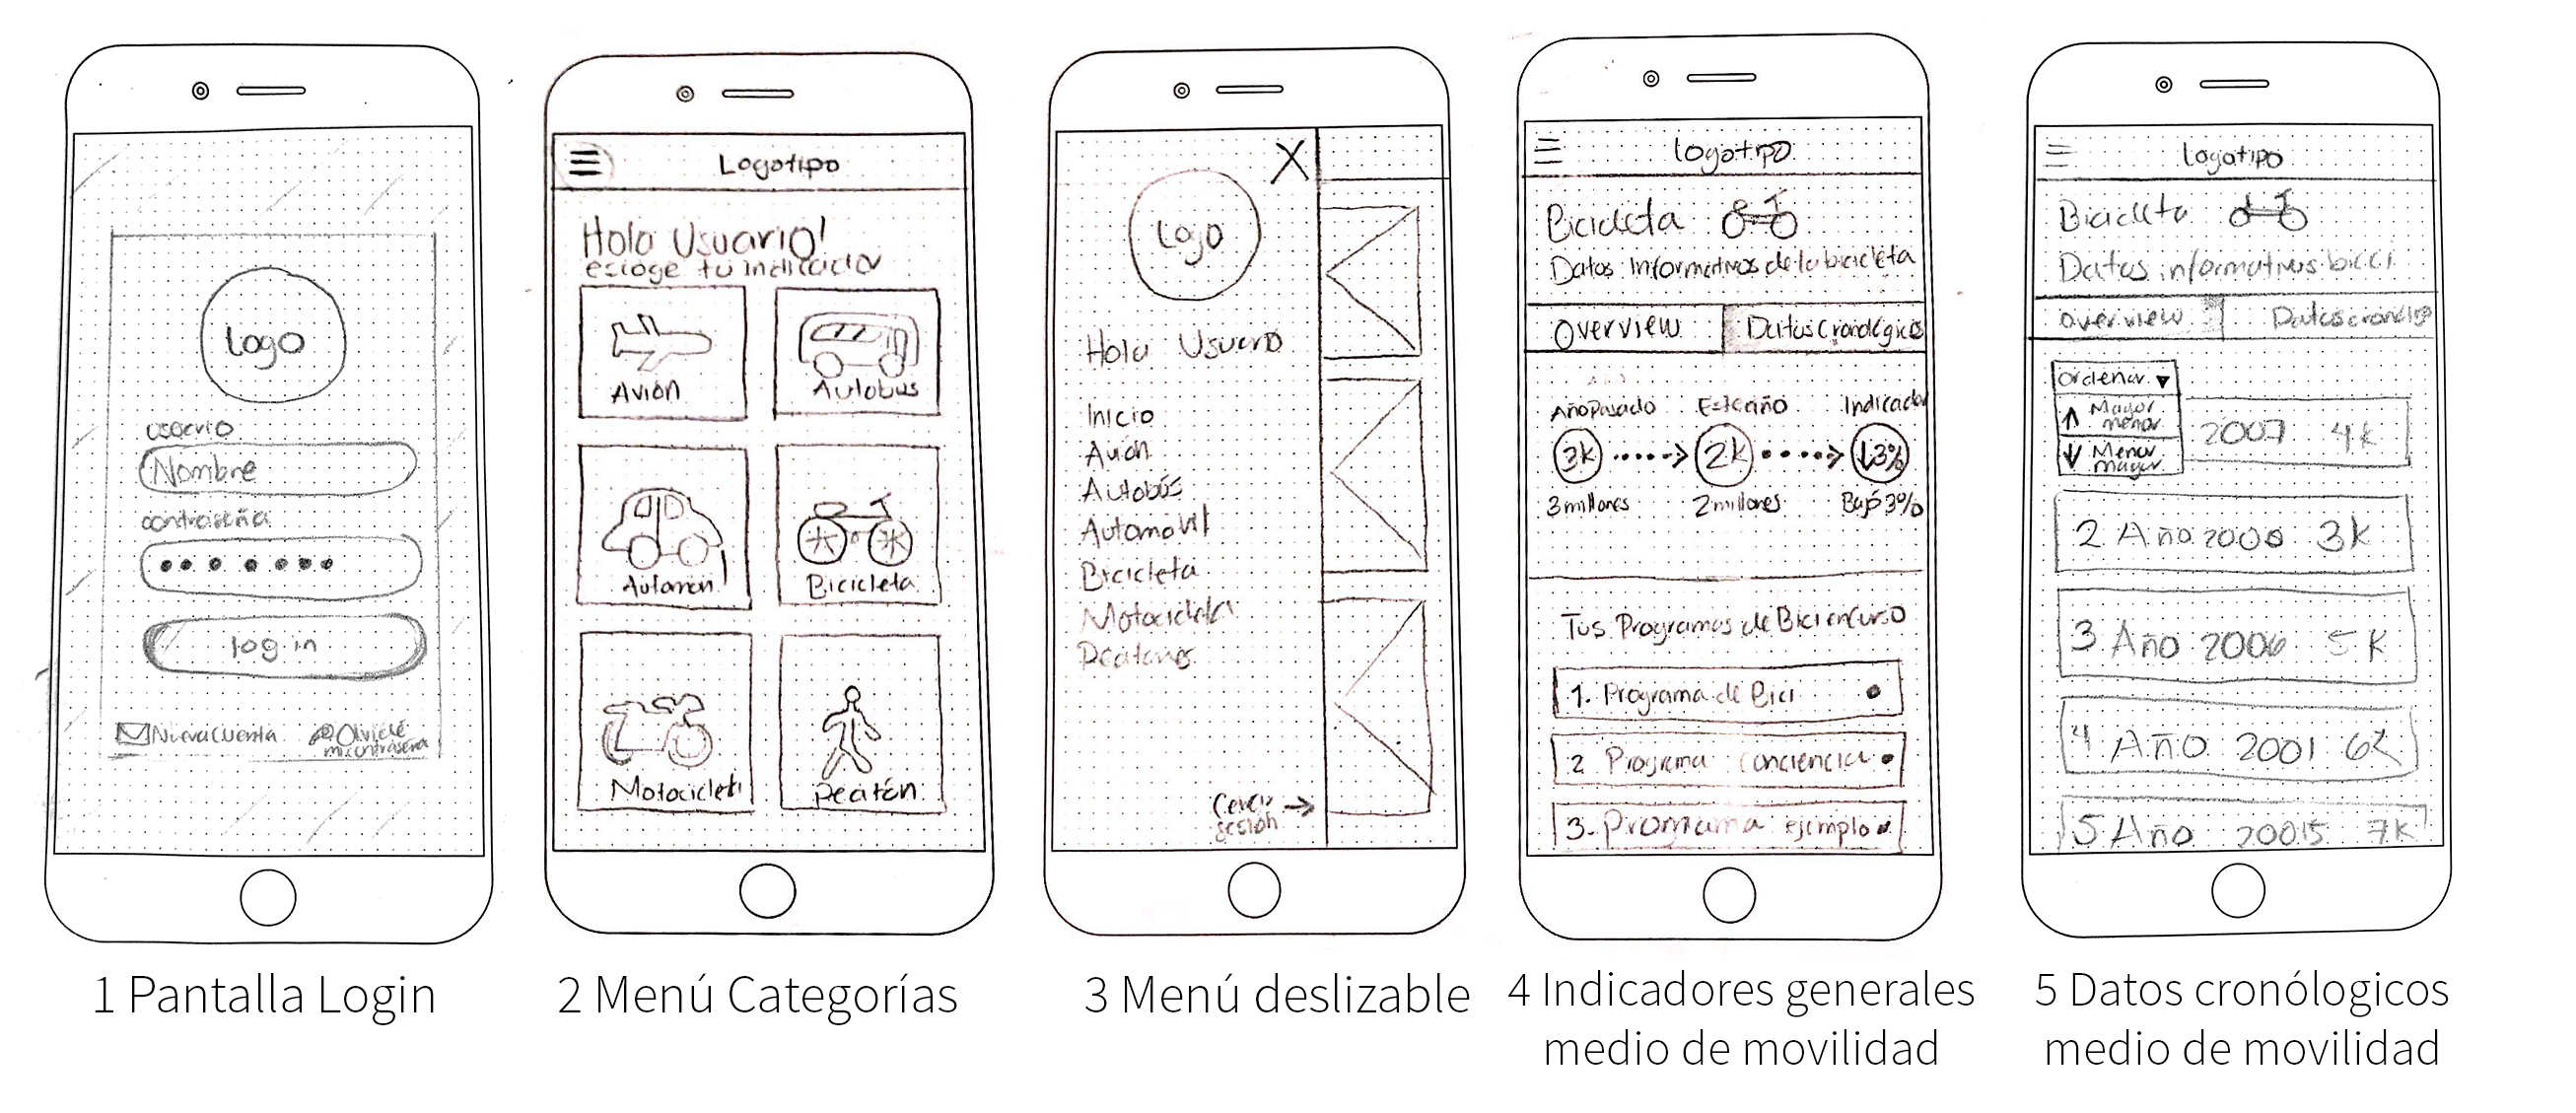 Logo
usuario
Nombre
contraseña
log in
Nueva cuenta
Olvidé
mi contraseña
1 Pantalla Login
Logotipo
Hola Usuario!
escoge tu indicador
Avión
Autobus
Automovil
Bicicleta
Motocicleta
Peatón
2 Menú Categorías
X
Logo
Hola Usuario
Inicio
Avión
Autobús
Automovil
Bicicleta
Motocicleta
Peatones
Cerrar
sesión
3 Menú deslizable
Logotipo
Bicicleta
Datos Informativos de la bicicleta
Overview
Datos Cronológicos
Año Pasado
Este año
Indicador
3k
2k
↓3%
3 millones
2 millones
Bajó 3%
Tus Programas de Bici en Curso
1. Programa de Bici
2 Programa conciencia
3. Programa ejemplo
4 Indicadores generales
medio de movilidad
Logotipo
Bicicleta
Datos informativos bicci
overview
Datos cronólogi
Ordenar
Mayor
menor
Menor
mayor
2007 4k
2 Año 2000 3k
3 Año 2006 5k
4 Año 2001 6k
5 Año 20015 7k
5 Datos cronólogicos
medio de movilidad